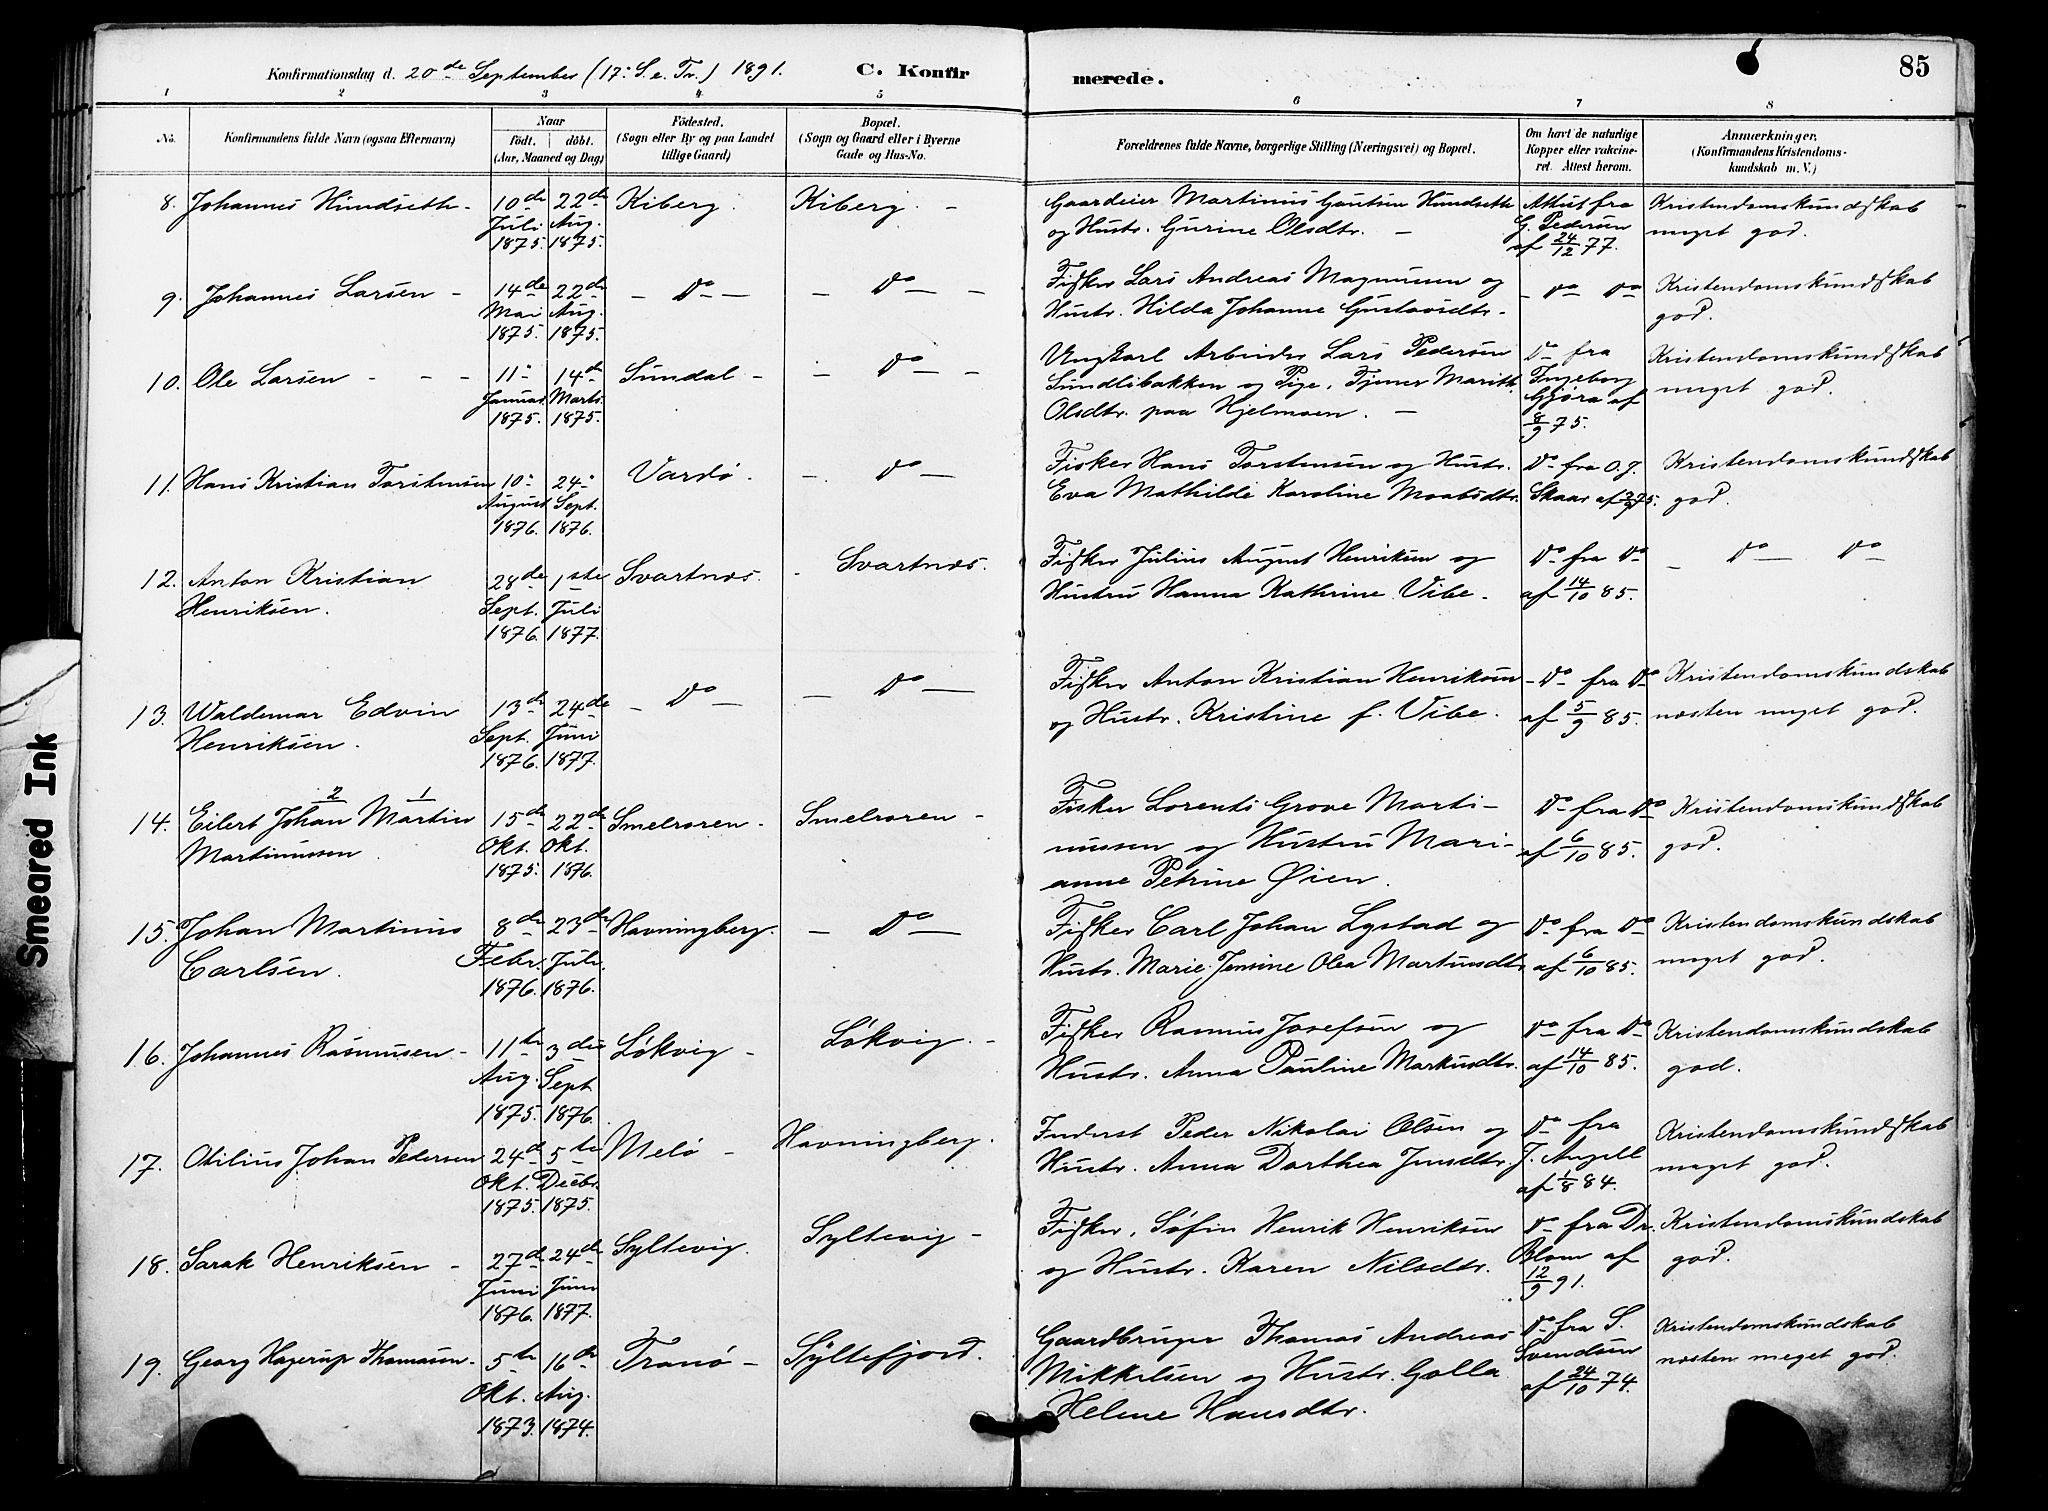 Konfirmationsdag d. 20de September (17. S. e. Tr.) 1891. C. Konfir merede. 85
1 2 3 4 5 6 7 8
No. Konfirmandens fulde Navn (ogsaa Efternavn) Naar født. døbt. (Aar, Maaned og Dag) Fødested. (Sogn eller By og paa Landet tillige Gaard) Bopæl. (Sogn og Gaard eller i Byerne Gade og Hus-No. Forældrenes fulde Navne, borgerlige Stilling (Næringsvei) og Bopæl. Om havt de naturlige Kopper eller vakcineret. Attest herom. Anmærkninger. (Konfirmandens Kristendomskundskab m. V.)
8. Johannes Hundseth - 10de Juli 1875. 22de Aug. 1875. Kiberg. Kiberg. -
Gaardeier Martinus Hundseth
og Hustr. Gurine Olsdtr. -
Attest fra
G. Pedersen
af 24/12 77.
Kristendomskundskab
meget god.
9. Johannes Larsen - 14de Mai 1875. 22de Aug. 1875. - Do - - Do -
Fisker Lars Andreas Magnusen og
Hustr. Hilda Johanne Gustavsdtr.
- Do Do
Kristendomskundskab
god.
10. Ole Larsen - - - 11- Januar 1875. 14de Marts 1875. Sundal - - Do -
Ungkarl Arbeider Lars Pedersen
Sundlibakken og Pige, Tjener Marith
Olsdtr. paa Hjelmoen. -
Do fra
Ingeborg
Gjøra af
8/9 75.
Kristendomskundskab
meget god.
11. Hans Kristian Torstensen 10- August 1876. 24- Sept. 1876. Vardø. - Do -
Fisker Hans Torstensen og Hustr.
Eva Mathilde Karoline
Do fra O. J.
Skaar af
Kristendomskundskab
god.
12. Anton Kristian
Henriksen. 28de Sept. 1876. 1ste Juli 1877. Svartnæs. Svartnæs.
Fisker Julius August Henriksen og
Hustru Hanna Kathrine Vibe.
Do fra Do
af 14/10 85.
- Do Do
13. Waldemar Edvin
Henriksen. 13de Sept. 1876. 24de Juni 1877. - Do - - Do -
Fisker Anton Kristian Henriksen
og Hustr. Kristine f. Vibe.
- Do fra Do
af 5/9 85.
Kristendomskundskab
næsten meget god.
2 1
14. Eilert Johan Martin
Martinussen 15de Okt. 1875. 22de Okt. 1876. Smelroren - Smelroren -
Fisker Lorents Grove Marti-
nussen og Hustru Mari-
anne Petrine Øien.
Do fra Do
af 6/10 85.
Kristendomskundskab
god.
15. Johan Martinus
Carlsen. 8de Febr. 1876. 23de Juli 1876. Havningberg. - Do -
Fisker Carl Johan Lystad og
Hustr. Marie Jensine Olea
Do fra Do
af 6/10 85.
Kristendomskundskab
meget god.
16. Johannes Rasmusen - 11te Aug. 1875. 3die Sept 1876. Løkvig - Løkvig. -
Fisker Rasmus Josefsen og
Hustr. Anna Pauline Markusdtr.
Do fra Do
af 14/10 85.
Kristendomskundskab
god.
17. Otilius Johan Pedersen 24de Okt. 1875. 5te Decbr. 1875. Melø - Havningberg.
Inderst Peder Nikolai Olsen og
Hustr. Anna Dorthea Jensdtr.
Do fra
J. Angell
af 1/8 84.
Kristendomskundskab
meget god.
18. Sarak Henriksen - 27de Juni 1876. 24de Juni 1877. Syltevig. Syltevig -
Fisker, Søfin Henrik Henriksen
og Hustr. Karen Nilsdtr.
Do fra Dr.
Blom af
12/9 91.
Kristendomskundskab
god.
19. Georg Hagerup Thomasen - 5te Okt. 1873. 16de Aug. 1874. Tranø - Syltefjord.
Gaardbruger Thomas Andreas
Mikkelsen og Hustr. Golla
Helene Hansdtr.
Do fra S.
Svendsen
af 24/10 74.
Kristendomskundskab
næsten meget god.
Smeared Ink